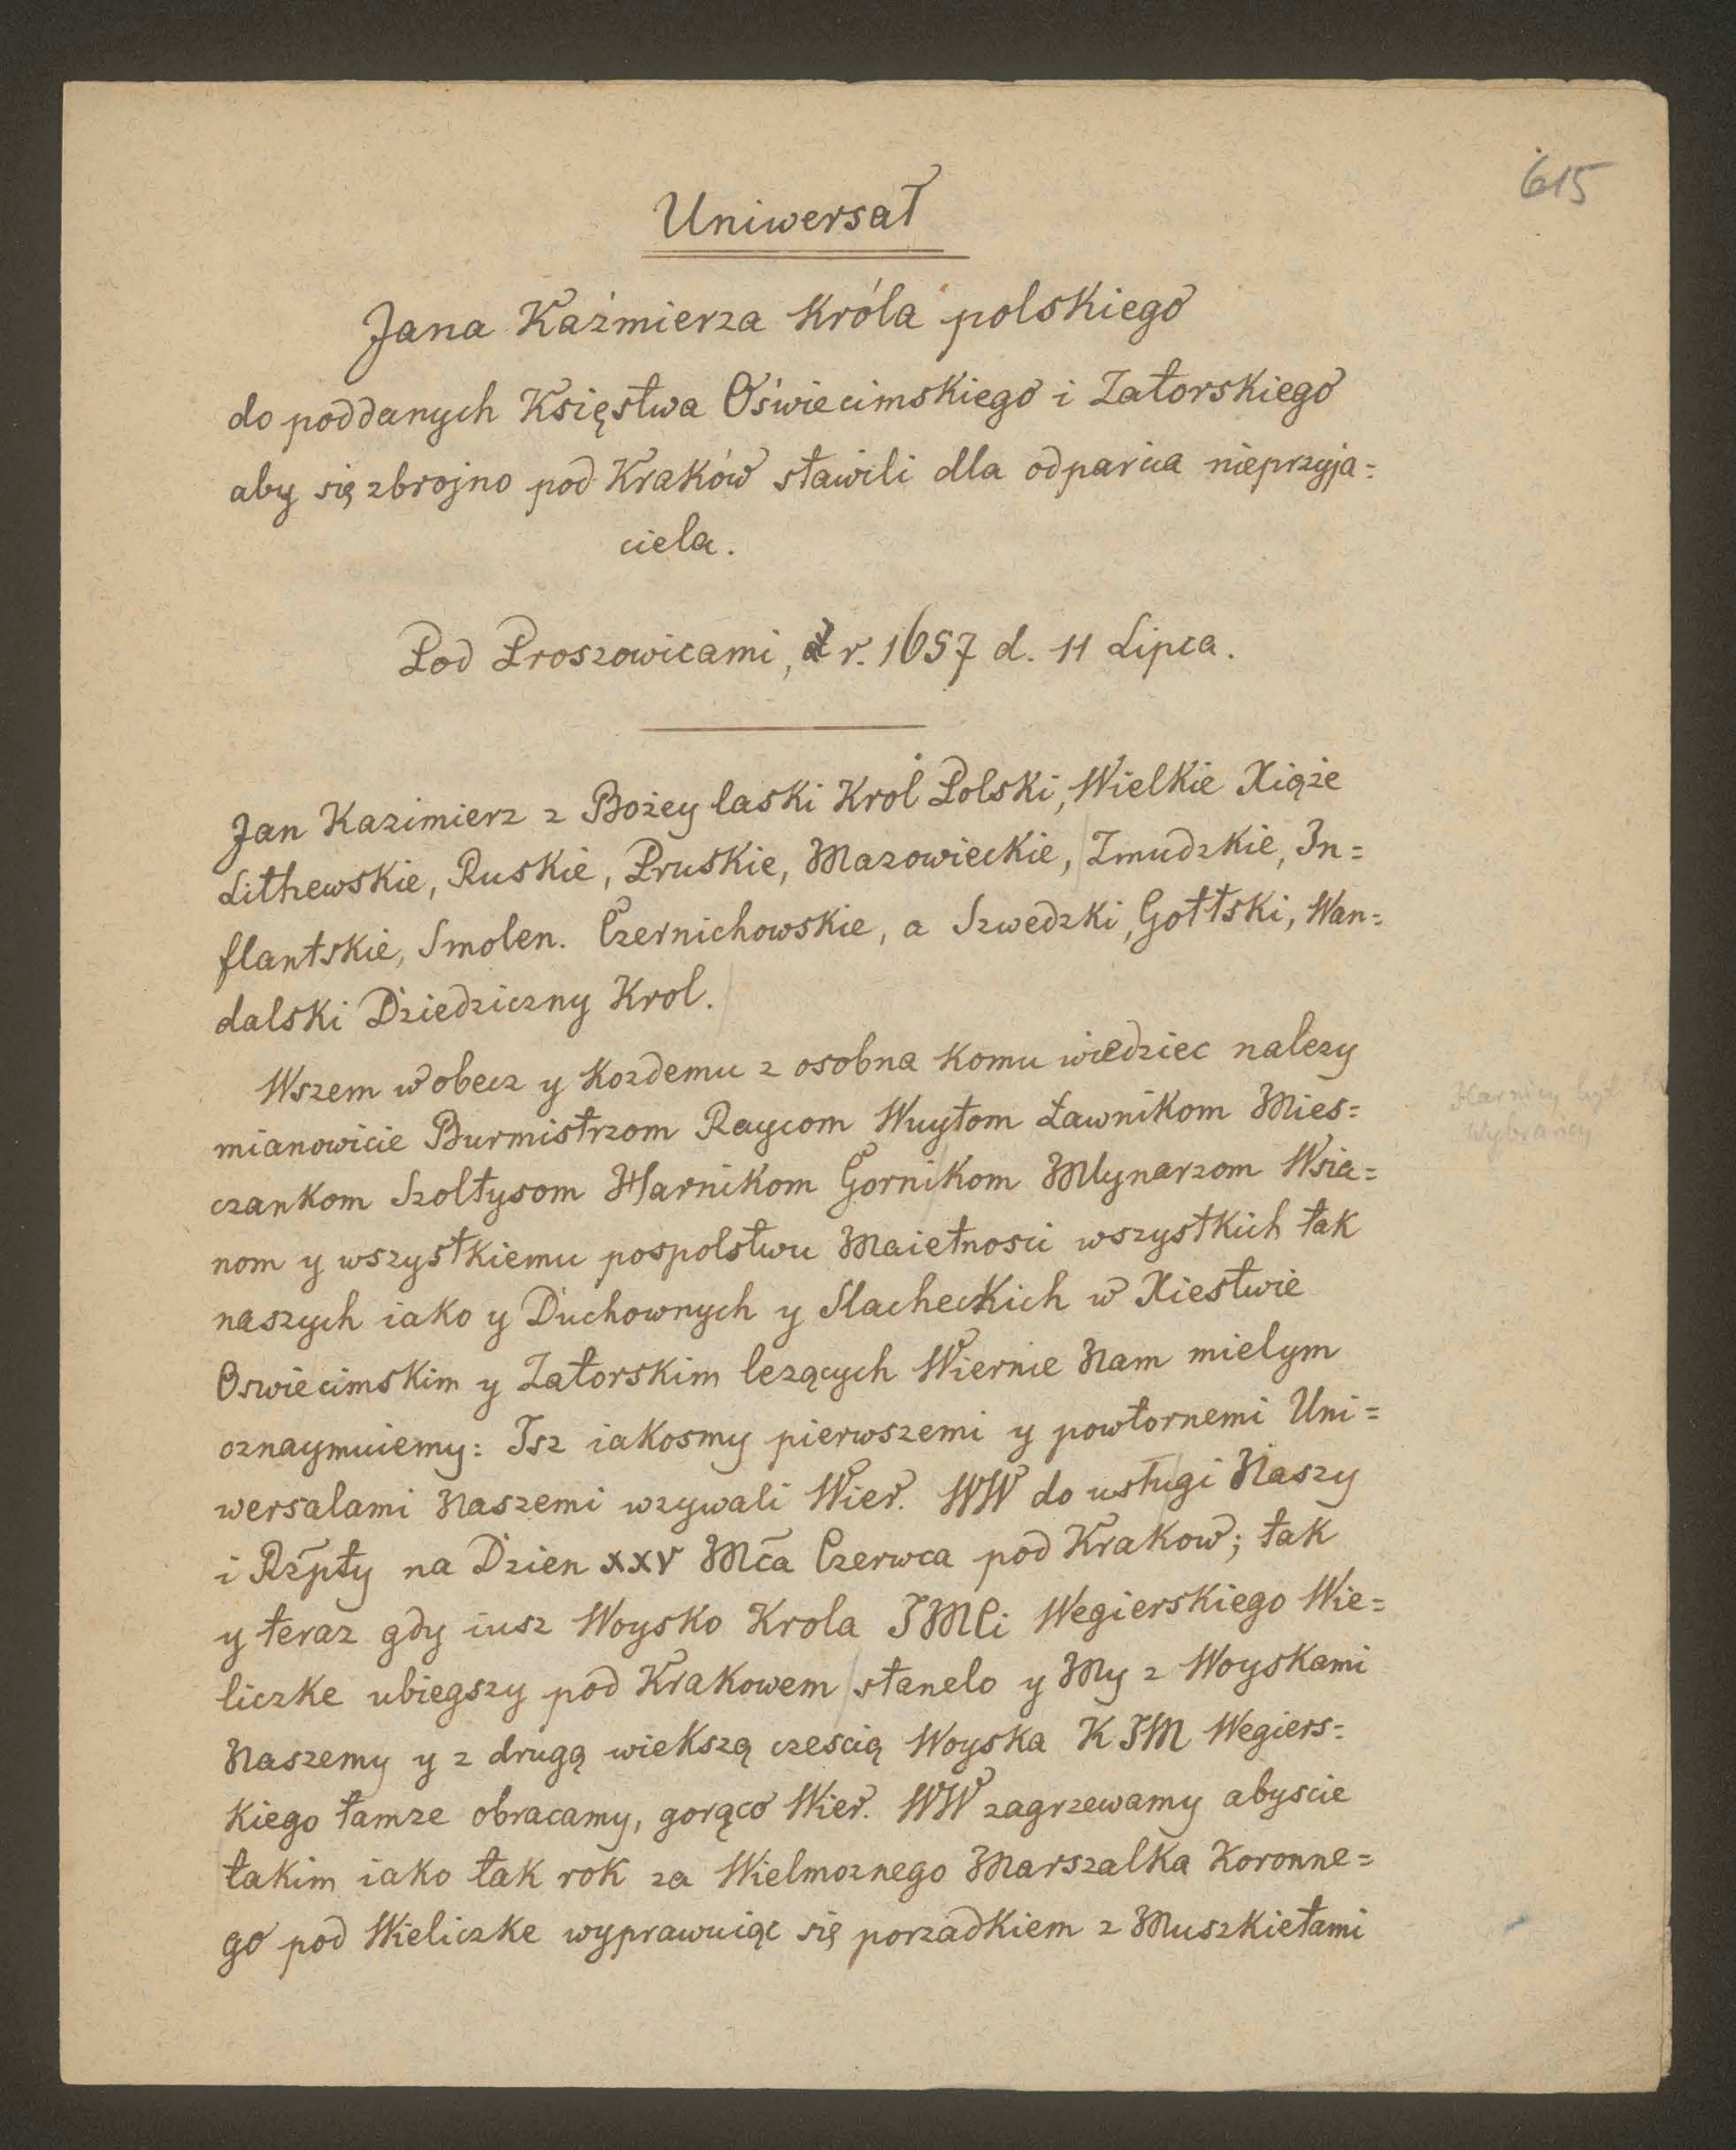 615
Uniwersał
Jana Kaźmierza Króla polskiego
do poddanych Księstwa Oświecimskiego i Zatorskiego
aby się zbrojno pod Kraków stawili dla odparcia nieprzyja=
ciela.
Pod Proszowicami, r. 1657 d. 11 Lipca.
Jan Kazimierz z Bożey laski Krol Polski, Wielkie Xiąże
Lithewskie, Ruskie, Pruskie, Mazowieckie, Zmudzkie, In=
flantskie, Smolen. Czernichowskie, a Szwedzki, Gottski, Wan=
dalski Dziedziczny Krol.
Wszem w obecz y Kozdemu z osobna Komu wiedziec nalezy
mianowicie Burmistrzom Raycom Wuytom Ławnikom Mies=
czankom Szoltysom Harnikom Gornikom Mlynarzom Wsia=
nom y wszystkiemu pospolstwu Maietnosci wszystkich tak
naszych iako y Duchownych y Slacheckich w Xiestwie
Oswiecimskim y Zatorskim lezących Wiernie Nam mielym
oznaymuiemy: Isz iakosmy pierwszemi y powtornemi Uni=
wersalami Naszemi wzywali Wier. WW do usługi Naszy
i Rzpty na Dzien xxv Mca Czerwca pod Krakow; tak
y teraz gdy iusz Woysko Krola JMCi Wegierskiego Wie=
liczke ubiegszy pod Krakowem stanelo y My z Woyskami
Naszemy y z drugą wiekszą czescią Woyska K JM Wegiers=
Kiego tamze obracamy, gorąco Wier. WW zagrzewamy abyscie
takim iako tak rok za Wielmoznego Marszalka Koronne=
go pod Wieliczke wyprawuiąc się porzadkiem z Muszkietami
Harnicy
Wybrancy